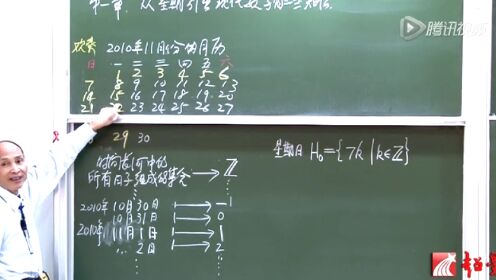 腾讯视频
第一章 从星期引出现代数学的一些
观察 2010年11月份的月历
日 一 二 三 四 五 六
1 2 3 4 5 6
7 8 9 10 11 12 13
14 15 16 17 18 19 20
21 22 23 24 25 26 27
29 30
时间长河中的
所有日子组成的集合 → ℤ
星期日 H₀={7k | k∈ℤ}
2010年10月30日 ↦ -1
10月31日 ↦ 0
2010年11月1日 ↦ 1
2日 ↦ 2